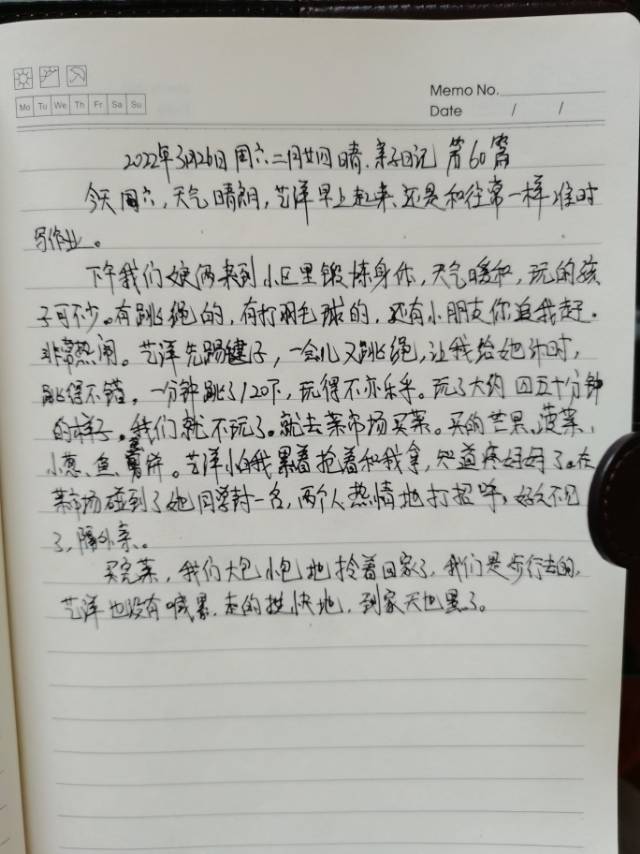 Mo Tu We Th Fr Sa Su
Memo No.
Date / /
2022年3月26日 周六 二月廿四 晴.亲子日记 第60篇
今天周六,天气晴朗,艺洋早上起来还是和往常一样准时
写作业。
下午我们娘俩来到小区里锻炼身体,天气暖和,玩的孩
子可不少。有跳绳的,有打羽毛球的,还有小朋友你追我赶.
非常热闹。艺洋先踢键子,一会儿又跳绳,让我给她计时,
跳得不错,一分钟跳了120下,玩得不亦乐乎。玩了大约四五十分钟
的样子。我们就不玩了。就去菜市场买菜。买的芒果、菠菜、
小葱、鱼、薯饼。艺洋怕我累着抢着和我拿,知道疼妈妈了。在
菜市场碰到了她同学封一名,两个人热情地打招呼,好久不见
了,隔外亲。
买完菜,我们大包小包地拎着回家了,我们是步行去的,
艺洋也没有喊累,走的挺快地,到家天也黑了。